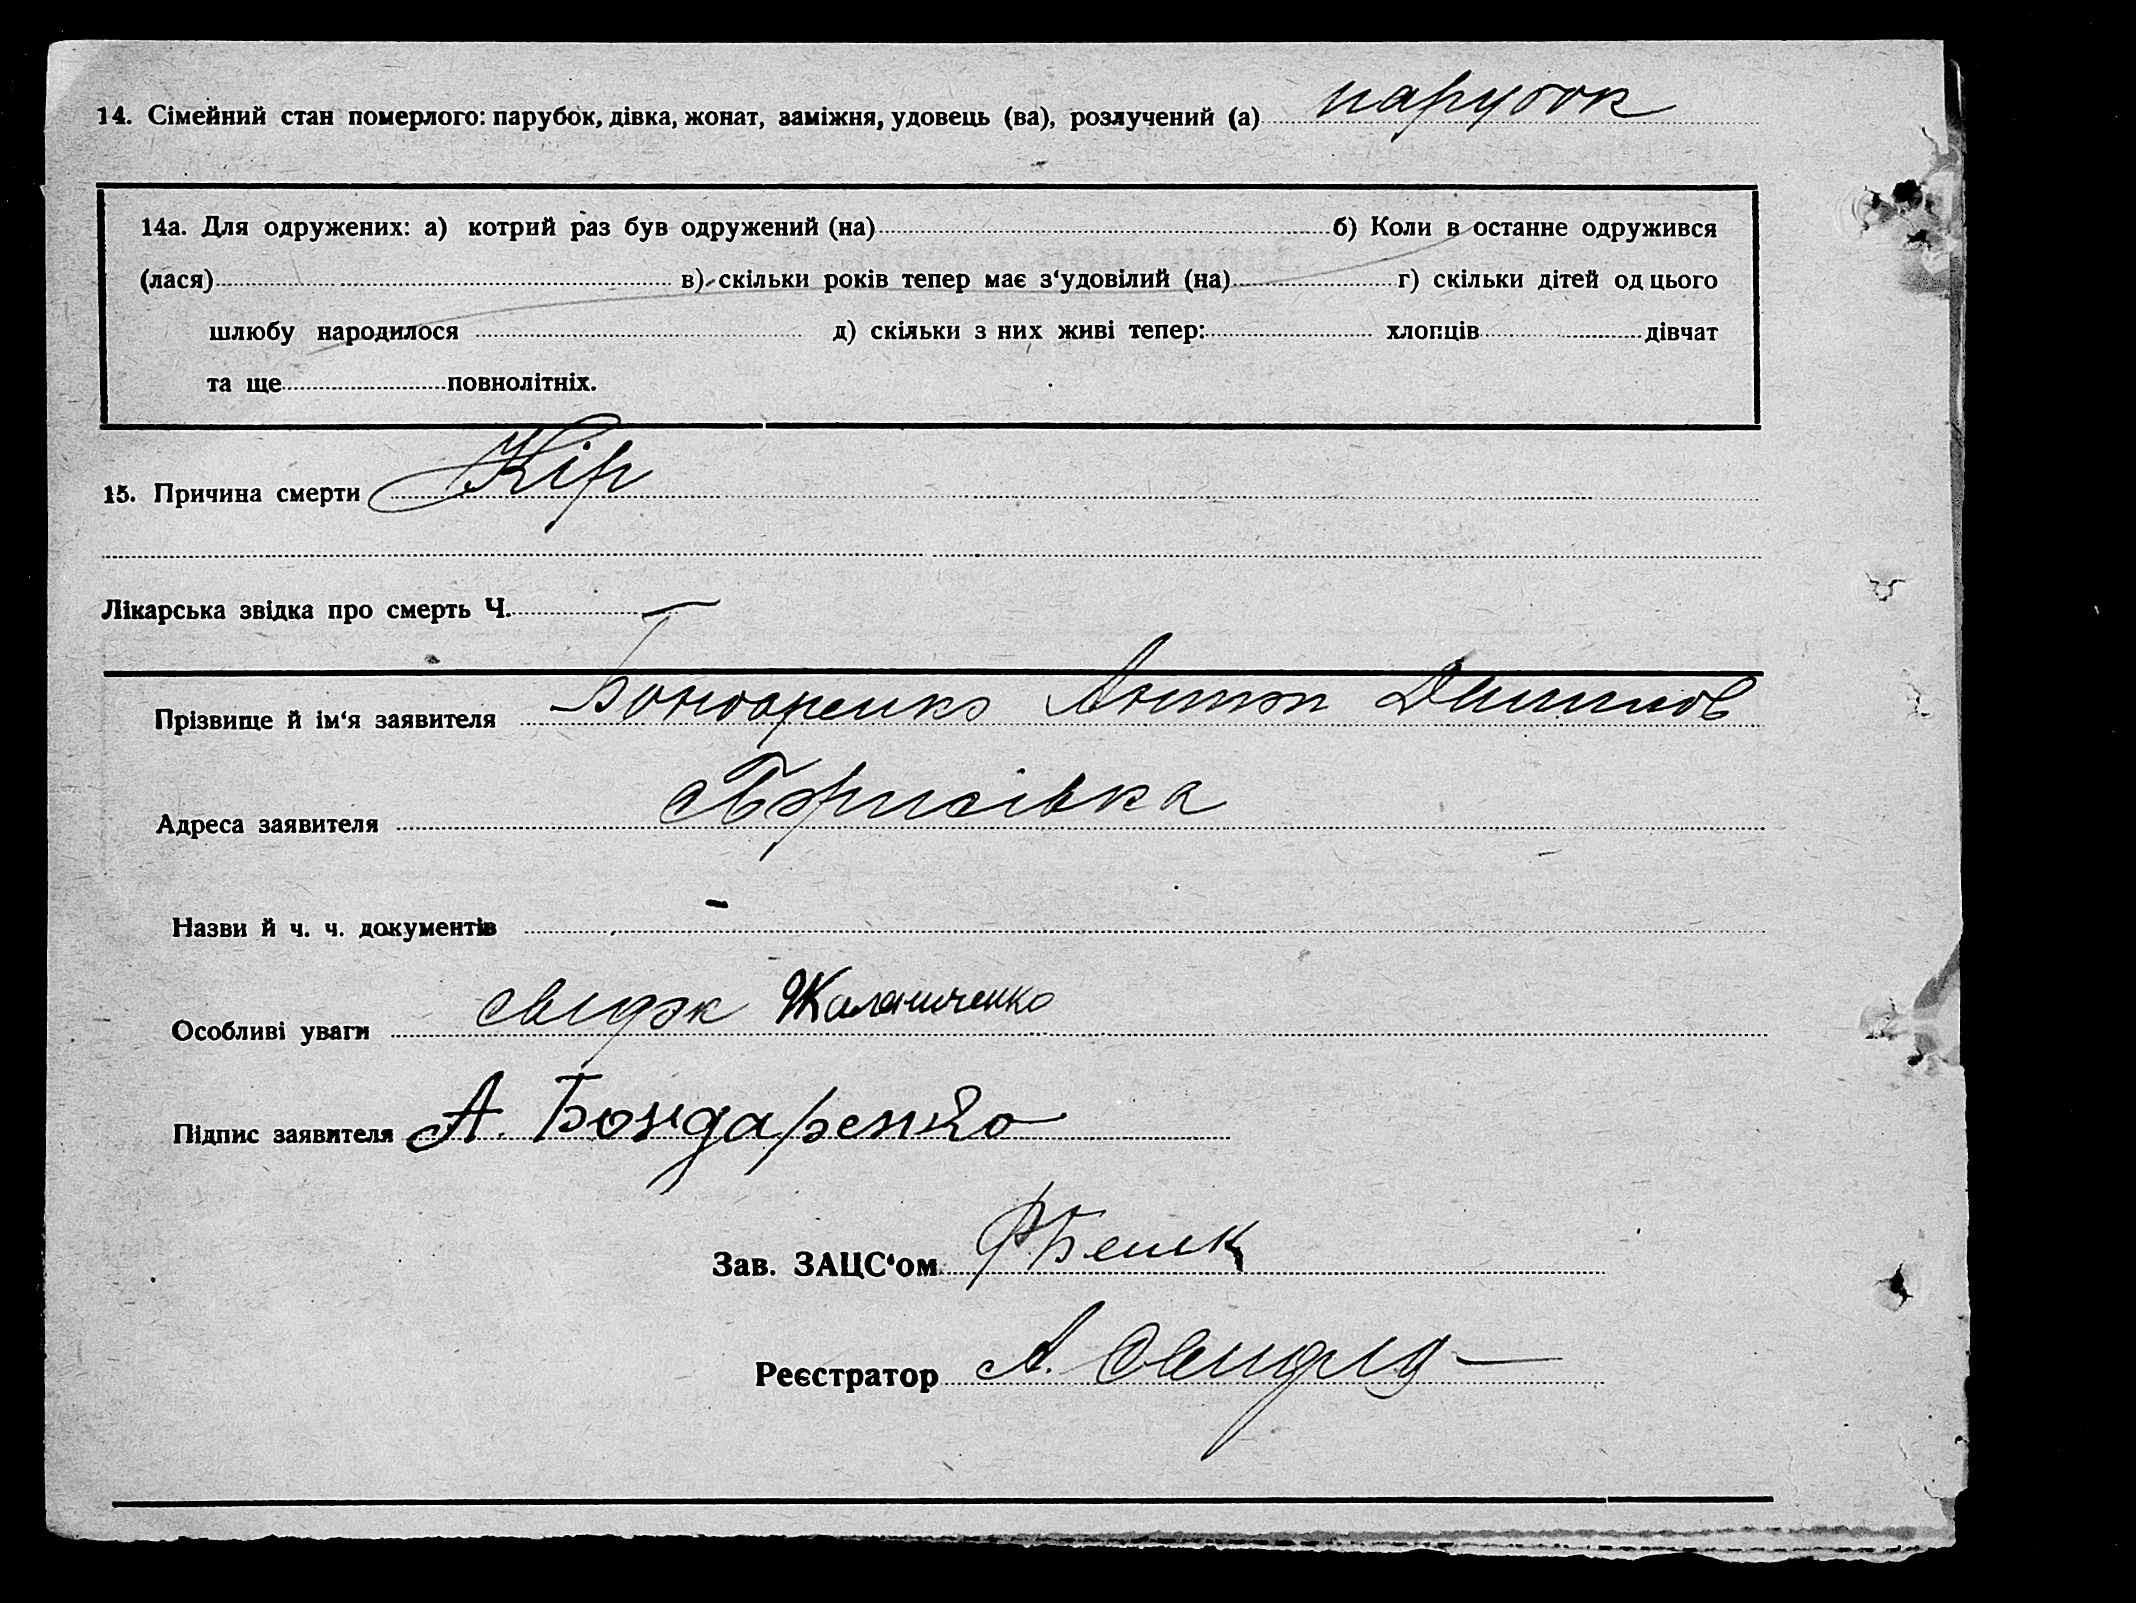 14. Сімейний стан померлого: парубок, дівка, жонат, заміжня, удовець (ва), розлучений (а) парубок
14а. Для одружених: а) котрий раз був одружений (на) б) Коли в останне одружився
(лася) в) скільки років тепер має з‘удовілий (на) г) скільки дітей од цього
шлюбу народилося д) скільки з них живі тепер: хлопців дівчат
та ще повнолітніх.
15. Причина смерти Кір
Лікарська звідка про смерть Ч. —
Прізвище й ім‘я заявителя Бондаренко Антон Данилов
Адреса заявителя с Борисівка
Назви й ч. ч. документів -
Особливі уваги свидок
Підпис заявителя А. Бондаренко
Зав. ЗАЦС‘ом
Реєстратор А.